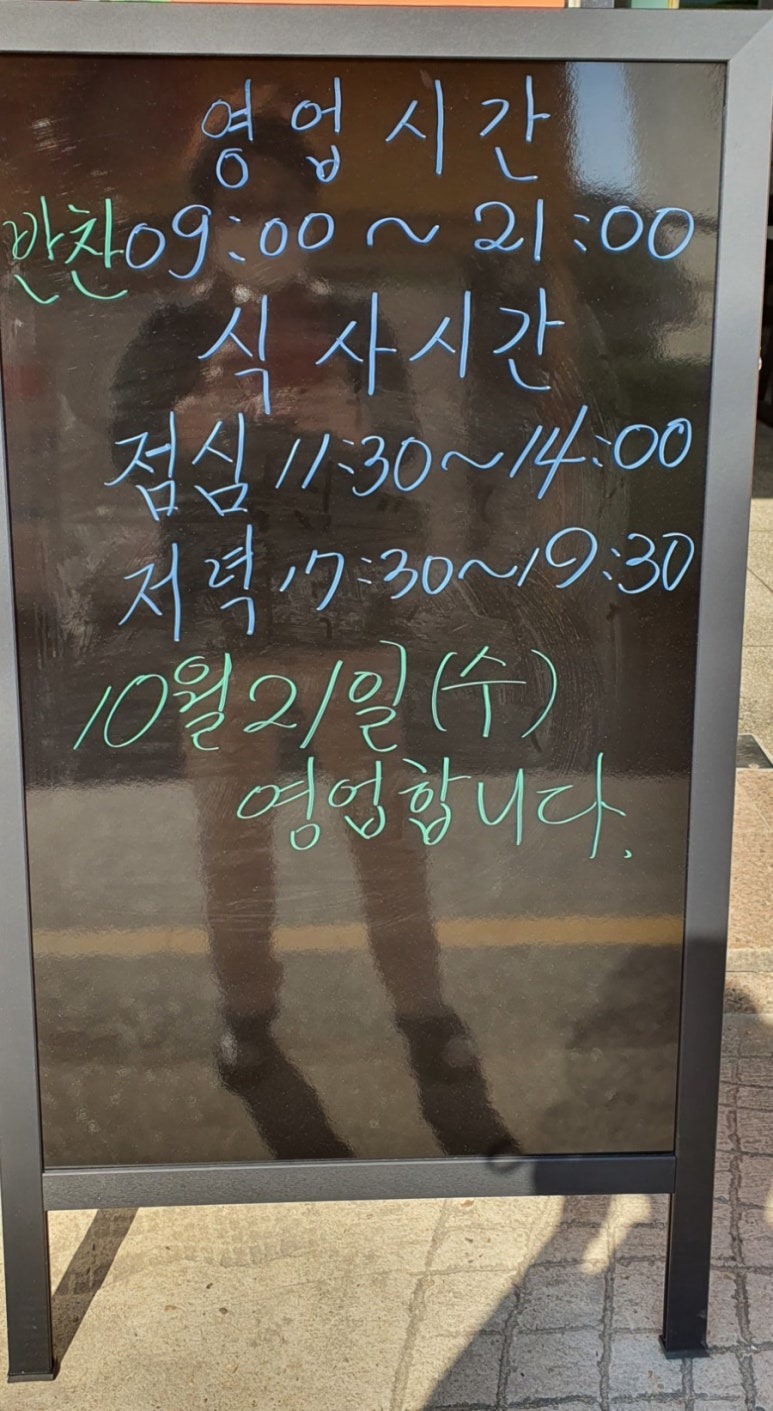 영업시간
반찬 09:00 ~ 21:00
식사시간
점심 11:30 ~ 14:00
저녁 17:30 ~ 19:30
10월 21일 (수)
영업합니다.